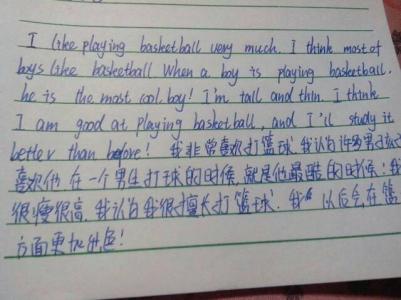 I like playing basketball very much. I think most of
boys like basketball When a boy is playing basketball.
he is the most cool boy! I'm tall and thin. I think
I am good at playing basketball, and I'll study it
better than before! 我非常喜欢打篮球. 我认为许多男孩
喜欢他 在一个男生打球的时候, 就是他最酷的时候! 我
很瘦很高. 我认为我很擅长打篮球. 我 以后会在篮
方面更加出色!